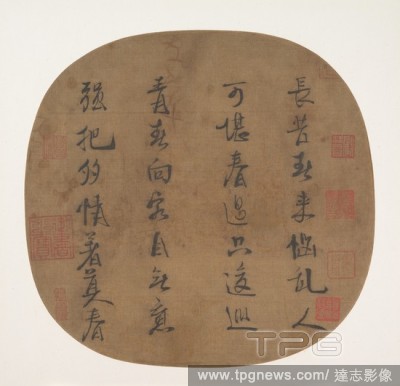 長苦春來惱亂人
可堪春過只逡巡
青春向客自無意
強把多情著莫春
TPG
www.tpgnews.com/ 達志影像